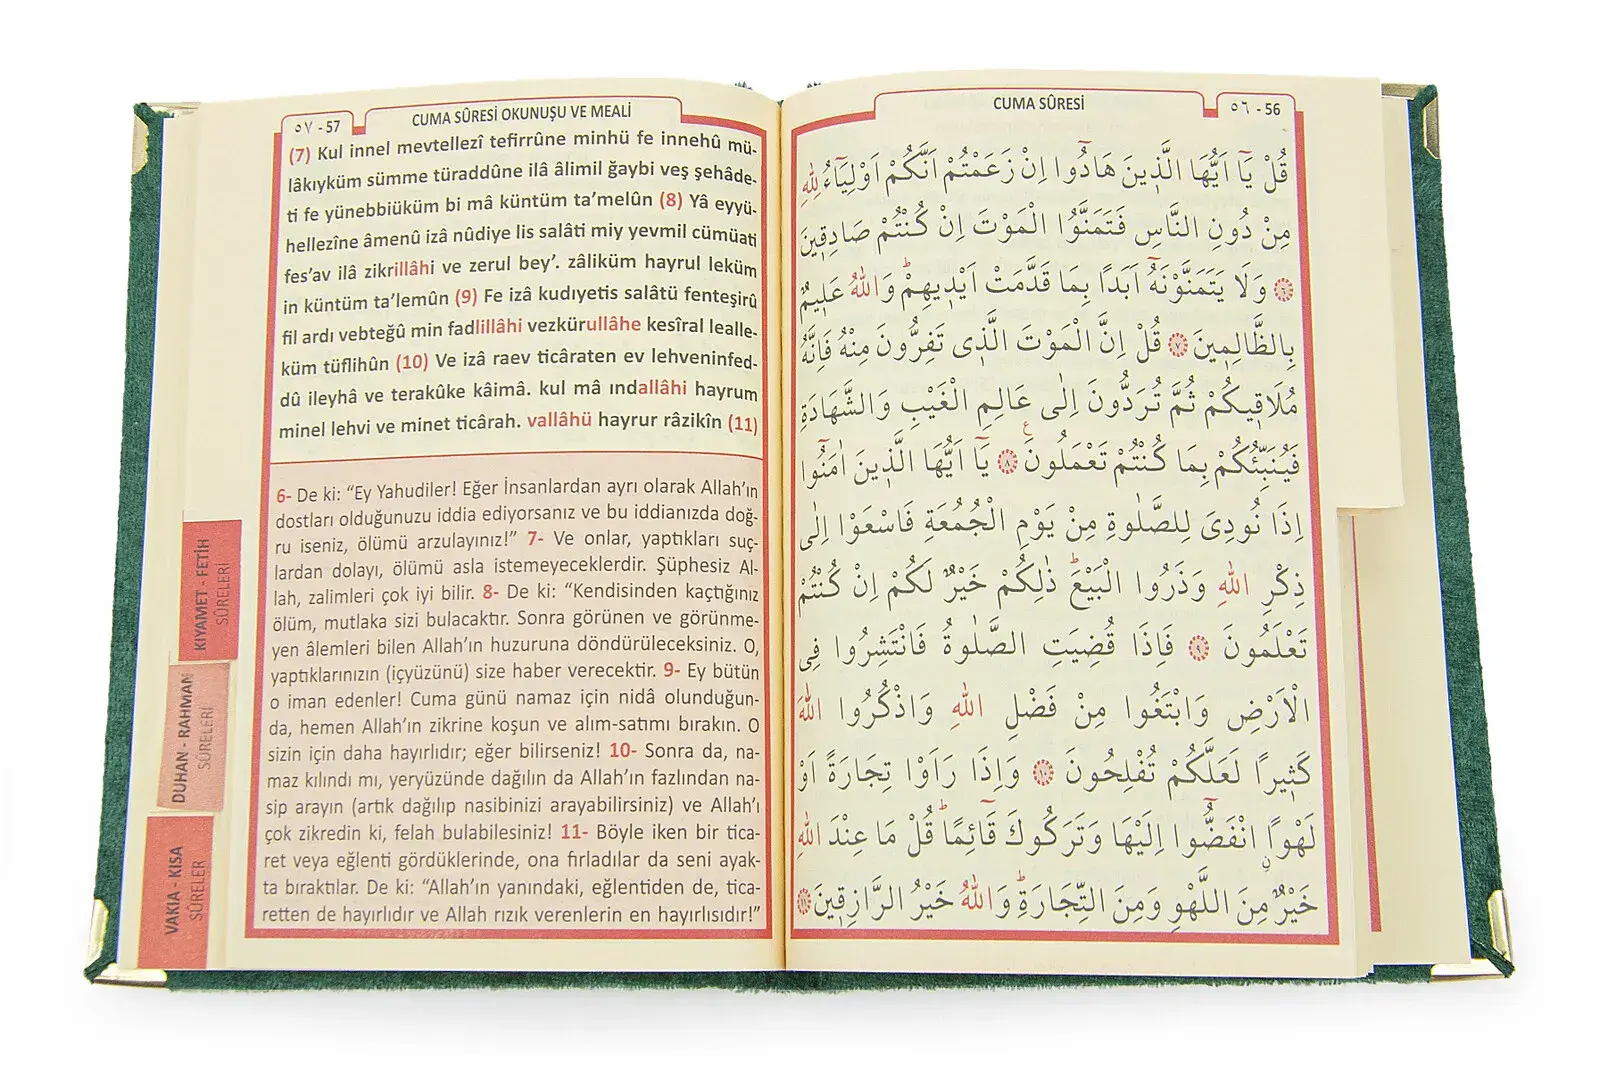 CUMA SÛRESİ
٥٦ - 56
قُلْ يَٓا اَيُّهَا الَّذ۪ينَ هَادُٓوا اِنْ زَعَمْتُمْ اَنَّكُمْ اَوْلِيَٓاءُ لِلّٰهِ
مِنْ دُونِ النَّاسِ فَتَمَنَّوُا الْمَوْتَ اِنْ كُنْتُمْ صَادِق۪ينَ
﴿٦﴾ وَلَا يَتَمَنَّوْنَهُٓ اَبَدًا بِمَا قَدَّمَتْ اَيْد۪يهِمْۜ وَاللّٰهُ عَل۪يمٌ
بِالظَّالِم۪ينَ ﴿٧﴾ قُلْ اِنَّ الْمَوْتَ الَّذ۪ي تَفِرُّونَ مِنْهُ فَاِنَّهُ
مُلَاق۪يكُمْ ثُمَّ تُرَدُّونَ اِلٰى عَالِمِ الْغَيْبِ وَالشَّهَادَةِ
فَيُنَبِّئُكُمْ بِمَا كُنْتُمْ تَعْمَلُونَ ﴿٨﴾ ع يَٓا اَيُّهَا الَّذ۪ينَ اٰمَنُٓوا
اِذَا نُودِيَ لِلصَّلٰوةِ مِنْ يَوْمِ الْجُمُعَةِ فَاسْعَوْا اِلٰى
ذِكْرِ اللّٰهِ وَذَرُوا الْبَيْعَۜ ذٰلِكُمْ خَيْرٌ لَكُمْ اِنْ كُنْتُمْ
تَعْلَمُونَ ﴿٩﴾ فَاِذَا قُضِيَتِ الصَّلٰوةُ فَانْتَشِرُوا فِي
الْاَرْضِ وَابْتَغُوا مِنْ فَضْلِ اللّٰهِ وَاذْكُرُوا اللّٰهَ
كَث۪يرًا لَعَلَّكُمْ تُفْلِحُونَ ﴿١٠﴾ وَاِذَا رَاَوْا تِجَارَةً اَوْ
لَهْوًاۨ انْفَضُّٓوا اِلَيْهَا وَتَرَكُوكَ قَٓائِمًاۜ قُلْ مَا عِنْدَ اللّٰهِ
خَيْرٌ مِنَ اللَّهْوِ وَمِنَ التِّجَارَةِۜ وَاللّٰهُ خَيْرُ الرَّازِق۪ينَ ﴿١١﴾
٥٧ - 57
CUMA SÛRESİ OKUNUŞU VE MEALİ
(7) Kul innel mevtellezî tefirrûne minhü fe innehû mü-
lâkıyküm sümme türaddûne ilâ âlimil ğaybi veş şehâde-
ti fe yünebbiüküm bi mâ küntüm ta’melûn (8) Yâ eyyü-
hellezîne âmenû izâ nûdiye lis salâti miy yevmil cümüati
fes’av ilâ zikrillâhi ve zerul bey’. zâliküm hayrul leküm
in küntüm ta’lemûn (9) Fe izâ kudıyetis salâtü fenteşirû
fil ardı vebteğû min fadlillâhi vezkürullâhe kesîral lealle-
küm tüflihûn (10) Ve izâ raev ticâraten ev lehveninfed-
dû ileyhâ ve terakûke kâimâ. kul mâ ındallâhi hayrum
minel lehvi ve minet ticârah. vallâhü hayrur râzikîn (11)
6- De ki: “Ey Yahudiler! Eğer İnsanlardan ayrı olarak Allah’ın
dostları olduğunuzu iddia ediyorsanız ve bu iddianızda doğ-
ru iseniz, ölümü arzulayınız!” 7- Ve onlar, yaptıkları suç-
lardan dolayı, ölümü asla istemeyeceklerdir. Şüphesiz Al-
lah, zalimleri çok iyi bilir. 8- De ki: “Kendisinden kaçtığınız
ölüm, mutlaka sizi bulacaktır. Sonra görünen ve görünme-
yen âlemleri bilen Allah’ın huzuruna döndürüleceksiniz. O,
yaptıklarınızın (içyüzünü) size haber verecektir. 9- Ey bütün
o iman edenler! Cuma günü namaz için nidâ olunduğun-
da, hemen Allah’ın zikrine koşun ve alım-satımı bırakın. O
sizin için daha hayırlıdır; eğer bilirseniz! 10- Sonra da, na-
maz kılındı mı, yeryüzünde dağılın da Allah’ın fazlından na-
sip arayın (artık dağılıp nasibinizi arayabilirsiniz) ve Allah’ı
çok zikredin ki, felah bulabilesiniz! 11- Böyle iken bir tica-
ret veya eğlenti gördüklerinde, ona fırladılar da seni ayak-
ta bıraktılar. De ki: “Allah’ın yanındaki, eğlentiden de, tica-
retten de hayırlıdır ve Allah rızık verenlerin en hayırlısıdır!”
KIYAMET - FETİH
SÛRELERİ
DUHAN - RAHMAN
SÛRELERİ
VAKIA - KISA
SÛRELER